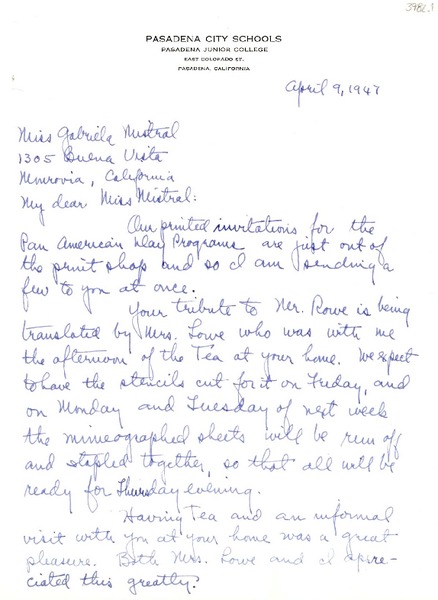 3982.1
PASADENA CITY SCHOOLS
PASADENA JUNIOR COLLEGE
EAST COLORADO ST.
PASADENA, CALIFORNIA
April 9, 1947
Miss Gabriela Mistral
1305 Buena Vista
Monrovia, California
My dear Miss Mistral:
Our printed invitations for the
Pan American Day Programs are just out of
the print shop and so I am sending a
few to you at once.
Your tribute to Mr. Rowe is being
translated by Mrs. Lowe who was with me
the afternoon of the Tea at your home. We expect
to have the stencils cut for it on Friday, and
on Monday and Tuesday of next week
the mimeographed sheets will be run off
and stapled together, so that all will be
ready for Thursday evening.
Having Tea and an informal
visit with you at your home was a great
pleasure. Both Mrs. Lowe and I appre-
ciated this greatly.